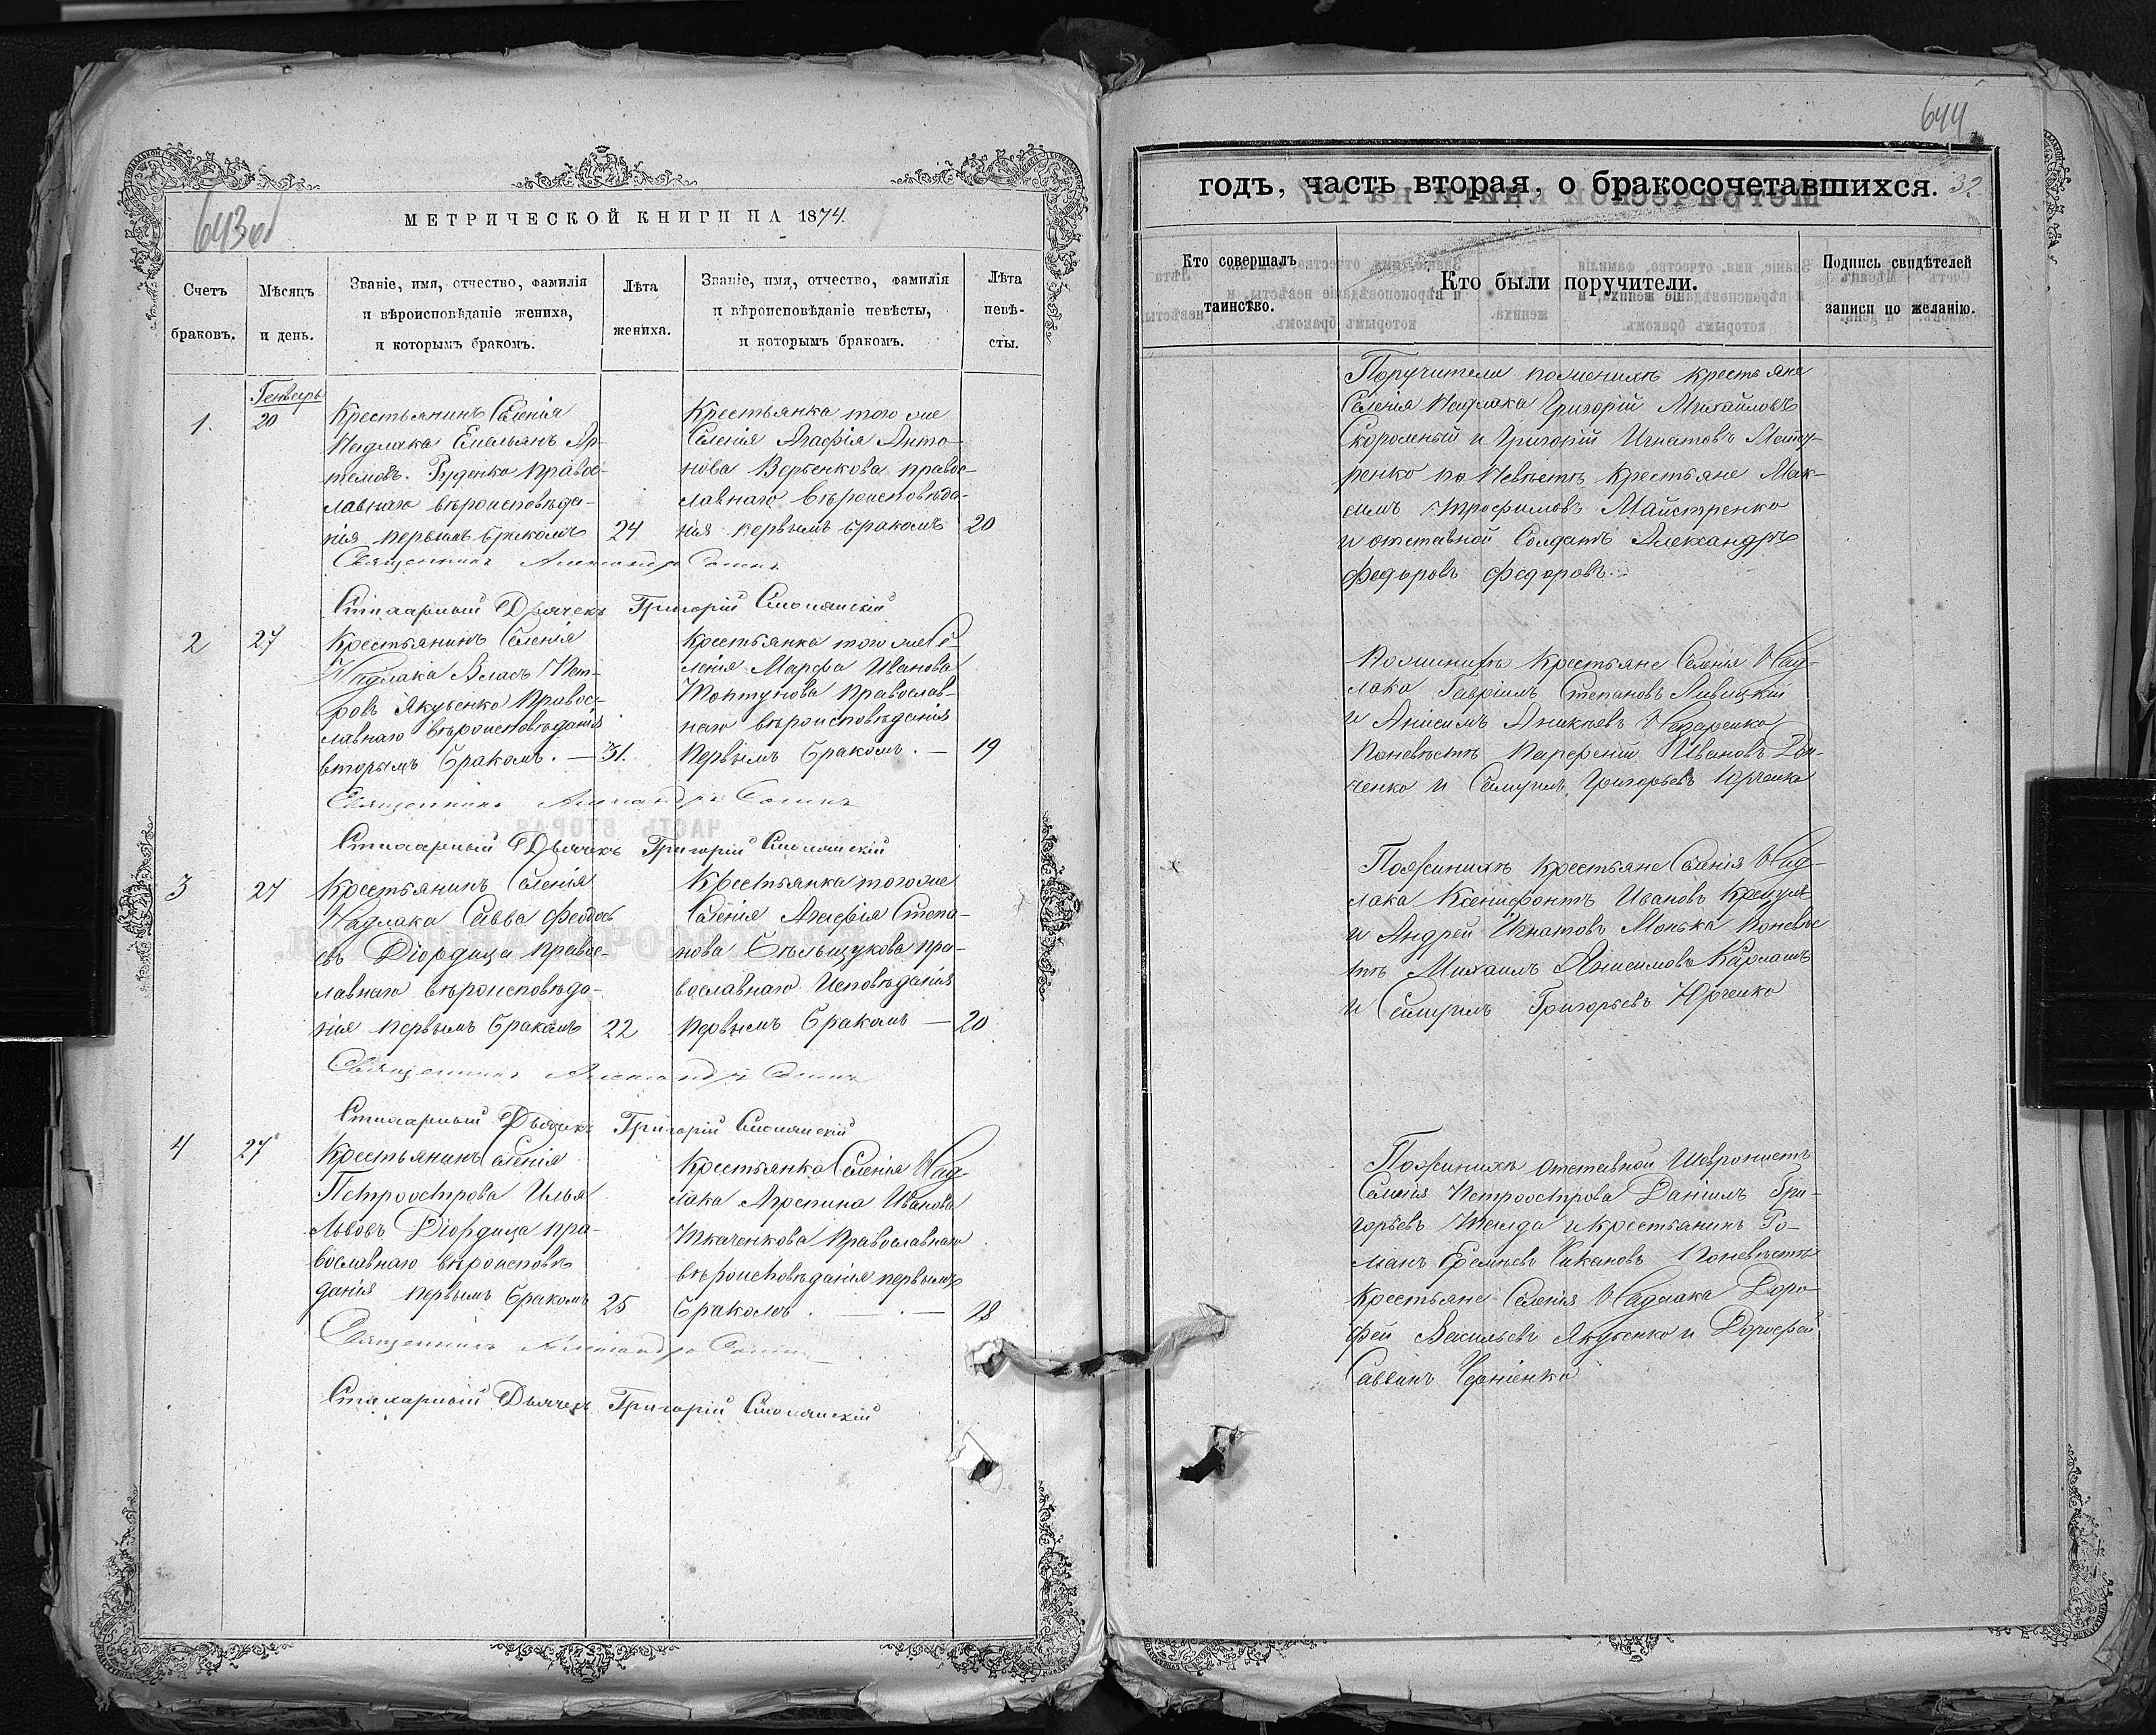 643 об
МЕТРИЧЕСКОЙ КНИГИ НА 1874.
Счетъ
браковъ.
Мѣсяцъ
и день.
Званіе, имя, отчество, фамилія
и вѣроисповѣданіе жениха,
и которымъ бракомъ.
Лѣта
жениха.
Званіе, имя, отчество, фамилія
и вѣроисповѣданіе невѣсты,
и которымъ бракомъ.
Лѣта
невѣ-
сты.
1.
Генварь
20
Крестьянинъ Селенія
Надлака Емельянъ Ар-
темовъ Руденко правос-
лавнаго вѣроисповѣда-
нія первымъ бракомъ
24
Крестьянка того же
Селенія Агафія Анто-
нова Вербенкова правос-
лавнаго вѣроисповѣда-
нія первымъ бракомъ
20
Священникъ Александръ
Стихарный Дьячекъ Григорій Смолянскій
2
27
Крестьянинъ Селенія
Надлака Власъ Пет-
ровъ Якубенко Правос-
лавнаго вѣроисповѣданія
вторымъ бракомъ. —
31.
Крестьянка того же Се-
ленія Марфа Иванова
Топтунова Православ-
наго вѣроисповѣданія
первымъ бракомъ. —
19
Священникъ Александръ
Стихарный Дьячекъ Григорій Смолянскій
3
27
Крестьянинъ Селенія
Надлака Савва Феодось
евъ Діордица правос-
лавнаго вѣроисповѣда-
нія первымъ бракомъ
22
Крестьянка того же
Селенія Агафія Степа-
нова Бѣльцукова пра-
вославнаго исповѣданія
первымъ бракомъ —
20
Священникъ Александръ
Стихарный Дьячекъ Григорій Смолянскій
4
27
Крестьянинъ Селенія
Петроострова Илья
Львовъ Діордица пра-
вославнаго вѣроисповѣ
данія первымъ бракомъ
25
Крестьянка Селенія Над-
лака Агрепина Иванова
Ткаченкова Православнаго
вѣроисповѣданія первымъ
бракомъ. . —
18
Священникъ Александръ
Стихарный Дьячекъ Григорій Смолянскій
644
годъ, часть вторая, о бракосочетавшихся. 32
Кто совершалъ
таинство.
Кто были поручители.
Подпись свидѣтелей
записи по желанію.
Поручители по женихѣ крестьяне
Селенія Надлака Григорій Михайловъ
Скоромный и Григорій Игнатовъ
по Невѣстѣ Крестьяне Мак-
симъ Трофимовъ Майстренко
и отставной Солдатъ Александръ
Федоровъ Федоровъ.
По женихѣ Крестьяне Селенія Над-
лака Гавріилъ Степановъ Ливицкій
и Анисимъ Аникіевъ Назаренко
по невѣстѣ Парфеній Ивановъ
и Самуилъ Григорьевъ Юрченко
По женихѣ Крестьяне Селенія Над-
лака Ксенифонтъ Ивановъ
и Андрей Игнатовъ Монька по невѣс
тѣ Михаилъ Анисимовъ
и Самуилъ Григорьевъ Юрченко
По женихѣ отставной Шевронистъ
Селенія Петроострова Даніилъ Гри-
горьевъ и Крестьянинъ Ро-
манъ Еремѣевъ по невѣстѣ
Крестьяне Селенія Надлака Доро-
фей Васильевъ Якубенко и Дорофей
Саввинъ